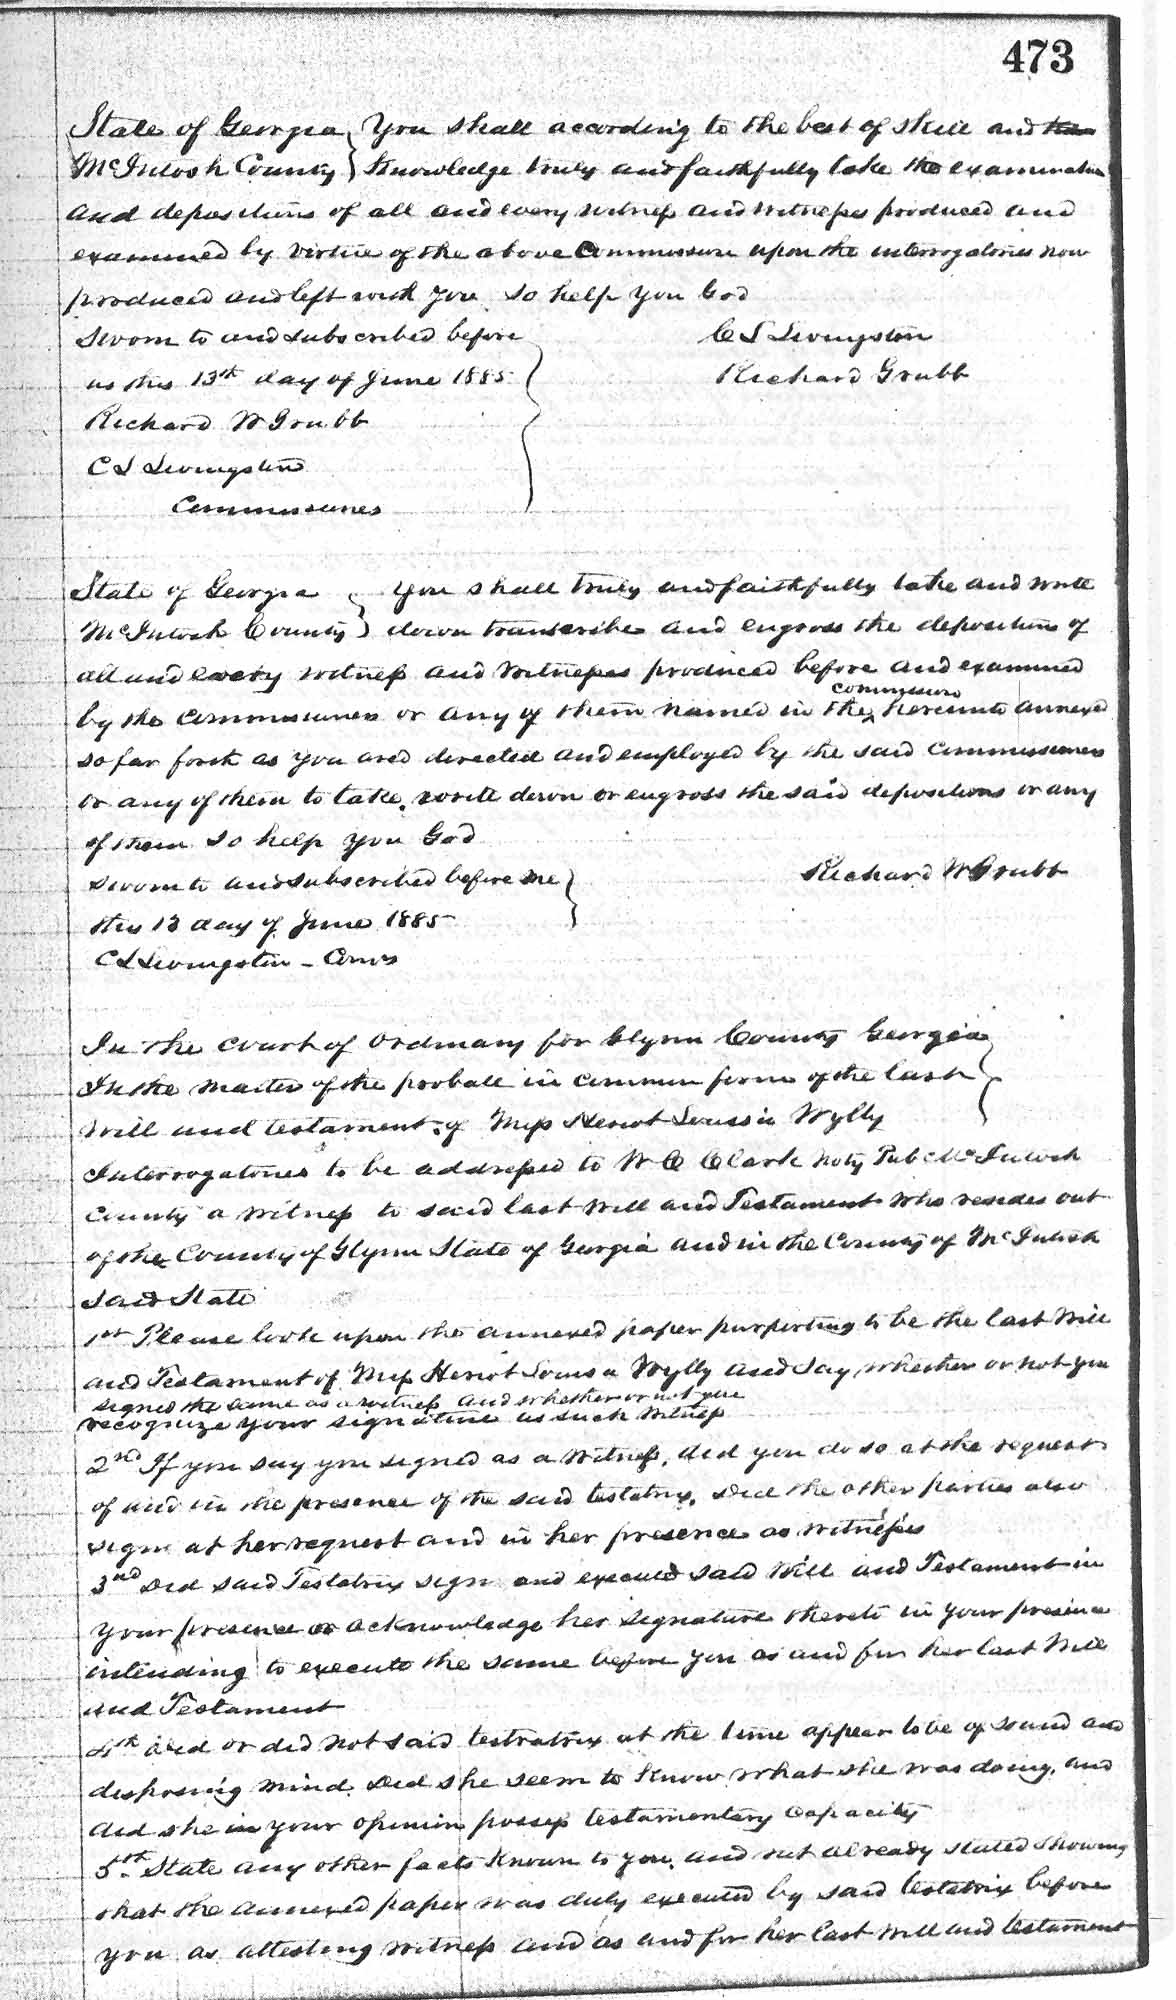 473
State of Georgia } You shall according to the best of skill and
McIntosh County } Knowledge truly and faithfully take the examination
and depositions of all and every witness and witnesses produced and
examined by virtue of the above Commission upon the interrogatories now
produced and left with you so help you God
Sworn to and subscribed before
C S Livingston
us this 13th day of June 1885
Richard Grubb
Richard W Grubb
C S Livingston
Commissioners
State of Georgia } You shall truly and faithfully take and write
McIntosh County } down transcribe and engross the depositions of
all and every witness and witnesses produced before and examined
by the commissioners or any of them named in the commission hereunto annexed
so far forth as you are directed and employed by the said commissioners
or any of them to take, write down or engross the said depositions or any
of them so help you God
Richard W Grubb
Sworn to and subscribed before me
this 13 day of June 1885
C S Livingston - Comr
In the court of Ordinary for Glynn County Georgia
In the matter of the probate in common form of the last
Will and testament of Miss Heriot Louisia Wylly
Interrogatories to be addressed to W C Clark Noty Pub McIntosh
County a witness to said last Will and Testament who resides out
of the County of Glynn State of Georgia and in the County of McIntosh
said State
1st Please look upon the annexed paper purporting to be the last Will
and Testament of Miss Heriot Louisa Wylly and say whether or not you
signed the same as a witness and whether or not you
recognize your signature as such witness
2nd If you say you signed as a witness, did you do so at the request
of and in the presence of the said testatrix. Did the other parties also
sign at her request and in her presence as witnesses
3rd Did said Testatrix sign and execute said Will and Testament in
your presence or acknowledge her signature thereto in your presence
intending to execute the same before you as and for her last Will
and Testament
4th Did or did not said testratrix at the time appear to be of sound and
disposing mind. Did she seem to know what she was doing, and
did she in your opinion possess testamentary capacity
5th State any other facts known to you, and not already stated showing
that the annexed paper was duly executed by said testatrix before
you as attesting witness and as and for her last will and testament